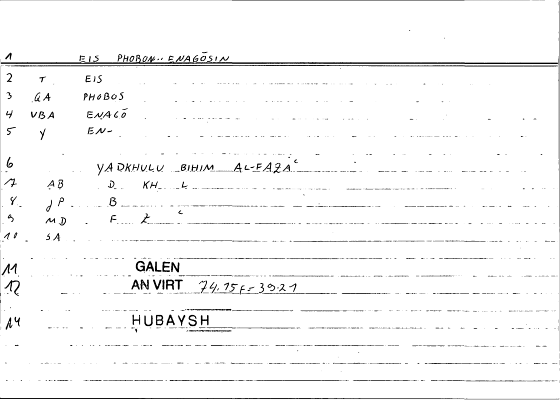 1 EIS PHOBON.. ENAGŌSIN
2 T EIS
3 GA PHOBOS
4 VBA ENAGŌ
5 Y EN-
6 YADKHULU BIHIM AL-FAZAʿ
7 AB D KH L
8 JP B
9 MD F Z ʿ
10 SA
11 GALEN
12 AN VIRT 74.15f = 39.21
14 HUBAYSH